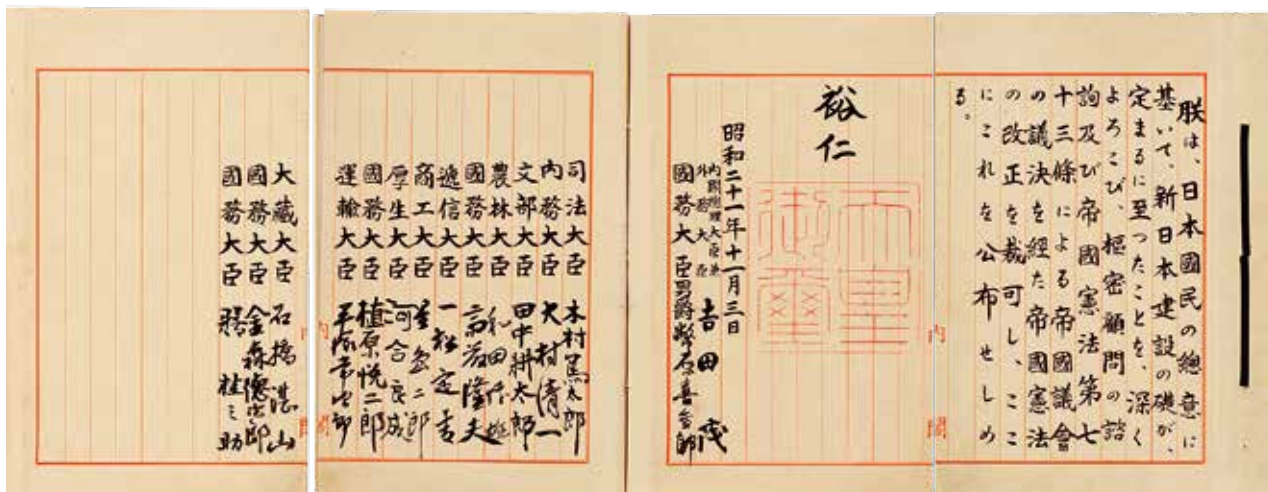 朕は、日本國民の總意に
基いて、新日本建設の礎が、
定まるに至つたことを、深く
よろこび、樞密顧問の諮
詢及び帝國憲法第七
十三條による帝國議會
の議決を經た帝國憲法
の改正を裁可し、ここ
にこれを公布せしめ
る。
裕仁
天皇御璽
昭和二十一年十一月三日
内閣總理大臣兼
外務大臣 吉田茂
國務大臣 男爵 幣原喜重郎
司法大臣 木村篤太郎
内務大臣 大村清一
文部大臣 田中耕太郎
農林大臣 和田博雄
國務大臣 斎藤隆夫
遞信大臣 一松定吉
商工大臣 星島二郎
厚生大臣 河合良成
國務大臣 植原悦二郎
運輸大臣 平塚常次郎
大藏大臣 石橋湛山
國務大臣 金森德次郎
國務大臣 膳桂之助
内閣
内閣